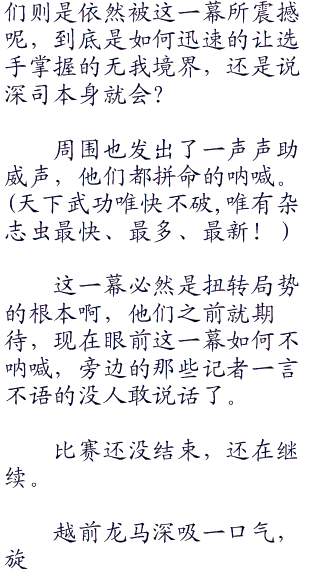 们则是依然被这一幕所震撼
呢，到底是如何迅速的让选
手掌握的无我境界，还是说
深司本身就会？
周围也发出了一声声助
威声，他们都拼命的呐喊。
(天下武功唯快不破,唯有杂
志虫最快、最多、最新！)
这一幕必然是扭转局势
的根本啊，他们之前就期
待，现在眼前这一幕如何不
呐喊，旁边的那些记者一言
不语的没人敢说话了。
比赛还没结束，还在继
续。
越前龙马深吸一口气，
旋